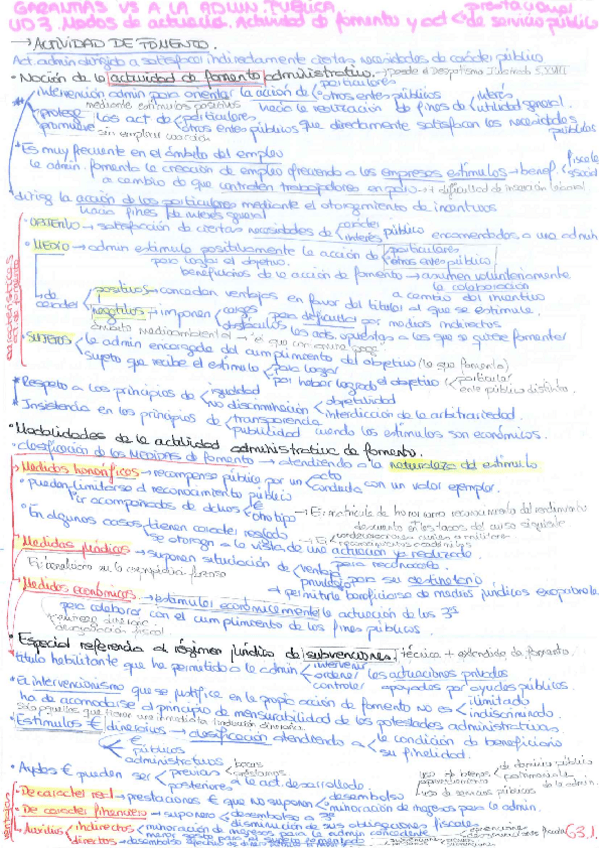 GARANTIAS VS A LA ADMN. PUBLICA
UD3. Modos de actuación. Actividad de fomento y act de servicio público
→ ACTIVIDAD DE FOMENTO.
Act. admin dirigido a satisfacer indirectamente ciertas necesidades de carácter público
• Noción de la actividad de fomento administrativo. Desde el Despotismo Ilustrado S. XVIII
intervención admin para orientar la acción de particulares otros entes públicos hacia la realización de fines de interés utilidad general.
mediante estímulos positivos
protege promueve los act de particulares otros entes públicos que directamente satisfacen las necesidades públicas
sin emplear coacción
• Es muy frecuente en el ámbito del empleo
la admin. fomenta la creación de empleo ofreciendo a las empresas estímulos → benef. fiscales social
a cambio de que contraten trabajadores en paro → + dificultad de inserción laboral
dirige la acción de los particulares mediante el otorgamiento de incentivos
hacia fines de interés general
características act de fomento
• OBJETIVO → satisfacción de ciertas necesidades de carácter interés público encomendadas a una admin
• MEDIO → admin estimula positivamente la acción de particulares otros entes público
para lograr el objetivo.
beneficiarios de la acción de fomento → asumen voluntariamente la colaboración
a cambio del incentivo
de carácter positivos → conceden ventajas en favor del titular al que se estimula.
negativos → imponen cargas obstáculos para dificultar por medios indirectos
los acts. opuestas a las que se quiere fomentar
ámbito medioambiental → "el que contamina paga"
• SUJETOS la admin encargada del cumplimiento del objetivo (lo que fomenta)
sujeto que recibe el estímulo para lograr por haber logrado el objetivo particular ente público distinto.
• Respeto a los principios de igualdad no discriminación objetividad interdicción de la arbitrariedad.
• Insistencia en los principios de transparencia publicidad cuando los estímulos son económicos.
• Modalidades de la actividad administrativa de fomento.
• clasificación de las MEDIDAS de fomento → atendiendo a la naturaleza del estímulo
• Medidas honoríficas → recompensa pública por un acto conducta con un valor ejemplar.
• pueden limitarse al reconocimiento público
ir acompañadas de dchos € otro tipo → Ej: matrícula de honor como reconocimiento del rendimiento
descuento en las tasas del curso siguiente
• En algunos casos tienen carácter reglado
se otorgan a la vista de una actuación ya realizada
→ Ej: condecoraciones civiles o militares
reconocimientos académicos
• Medidas jurídicas → suponen situación de ventaja privilegio para reconocerla. para su destinatario
→ permitirle beneficiarse de medios jurídicos excepcionales
• Medidas económicas → estimulan económicamente la actuación de los 3ºs
para colaborar con el cumplimiento de los fines públicos.
• Especial referencia al régimen jurídico de subvenciones. técnica + extendida de fomento.
título habilitante que ha permitido a la admin intervenir ordenar controlar las actuaciones privadas apoyadas por ayudas públicas.
• El intervencionismo que se justifica en la propia acción de fomento no es ilimitado indiscriminado.
ha de acomodarse al principio de mensurabilidad de las potestades administrativas.
• Estímulos € dinerarios → clasificación atendiendo a la condición de beneficiario su finalidad.
€ públicos administrativos
• Ayudas € pueden ser previas posteriores a la act. desarrollada.
becas préstamos
uso de bienes de dominio público patrimoniales de la admin
uso de servicios públicos
• De carácter real → prestaciones € que no suponen desembolso minoración de ingresos para la admin.
• De carácter financiero → suponen desembolso a 3º
disminución de sus obligaciones fiscales
• Auxilios indirectos minoración de ingresos para la admin concedente
directos → desembolso
G3.1.